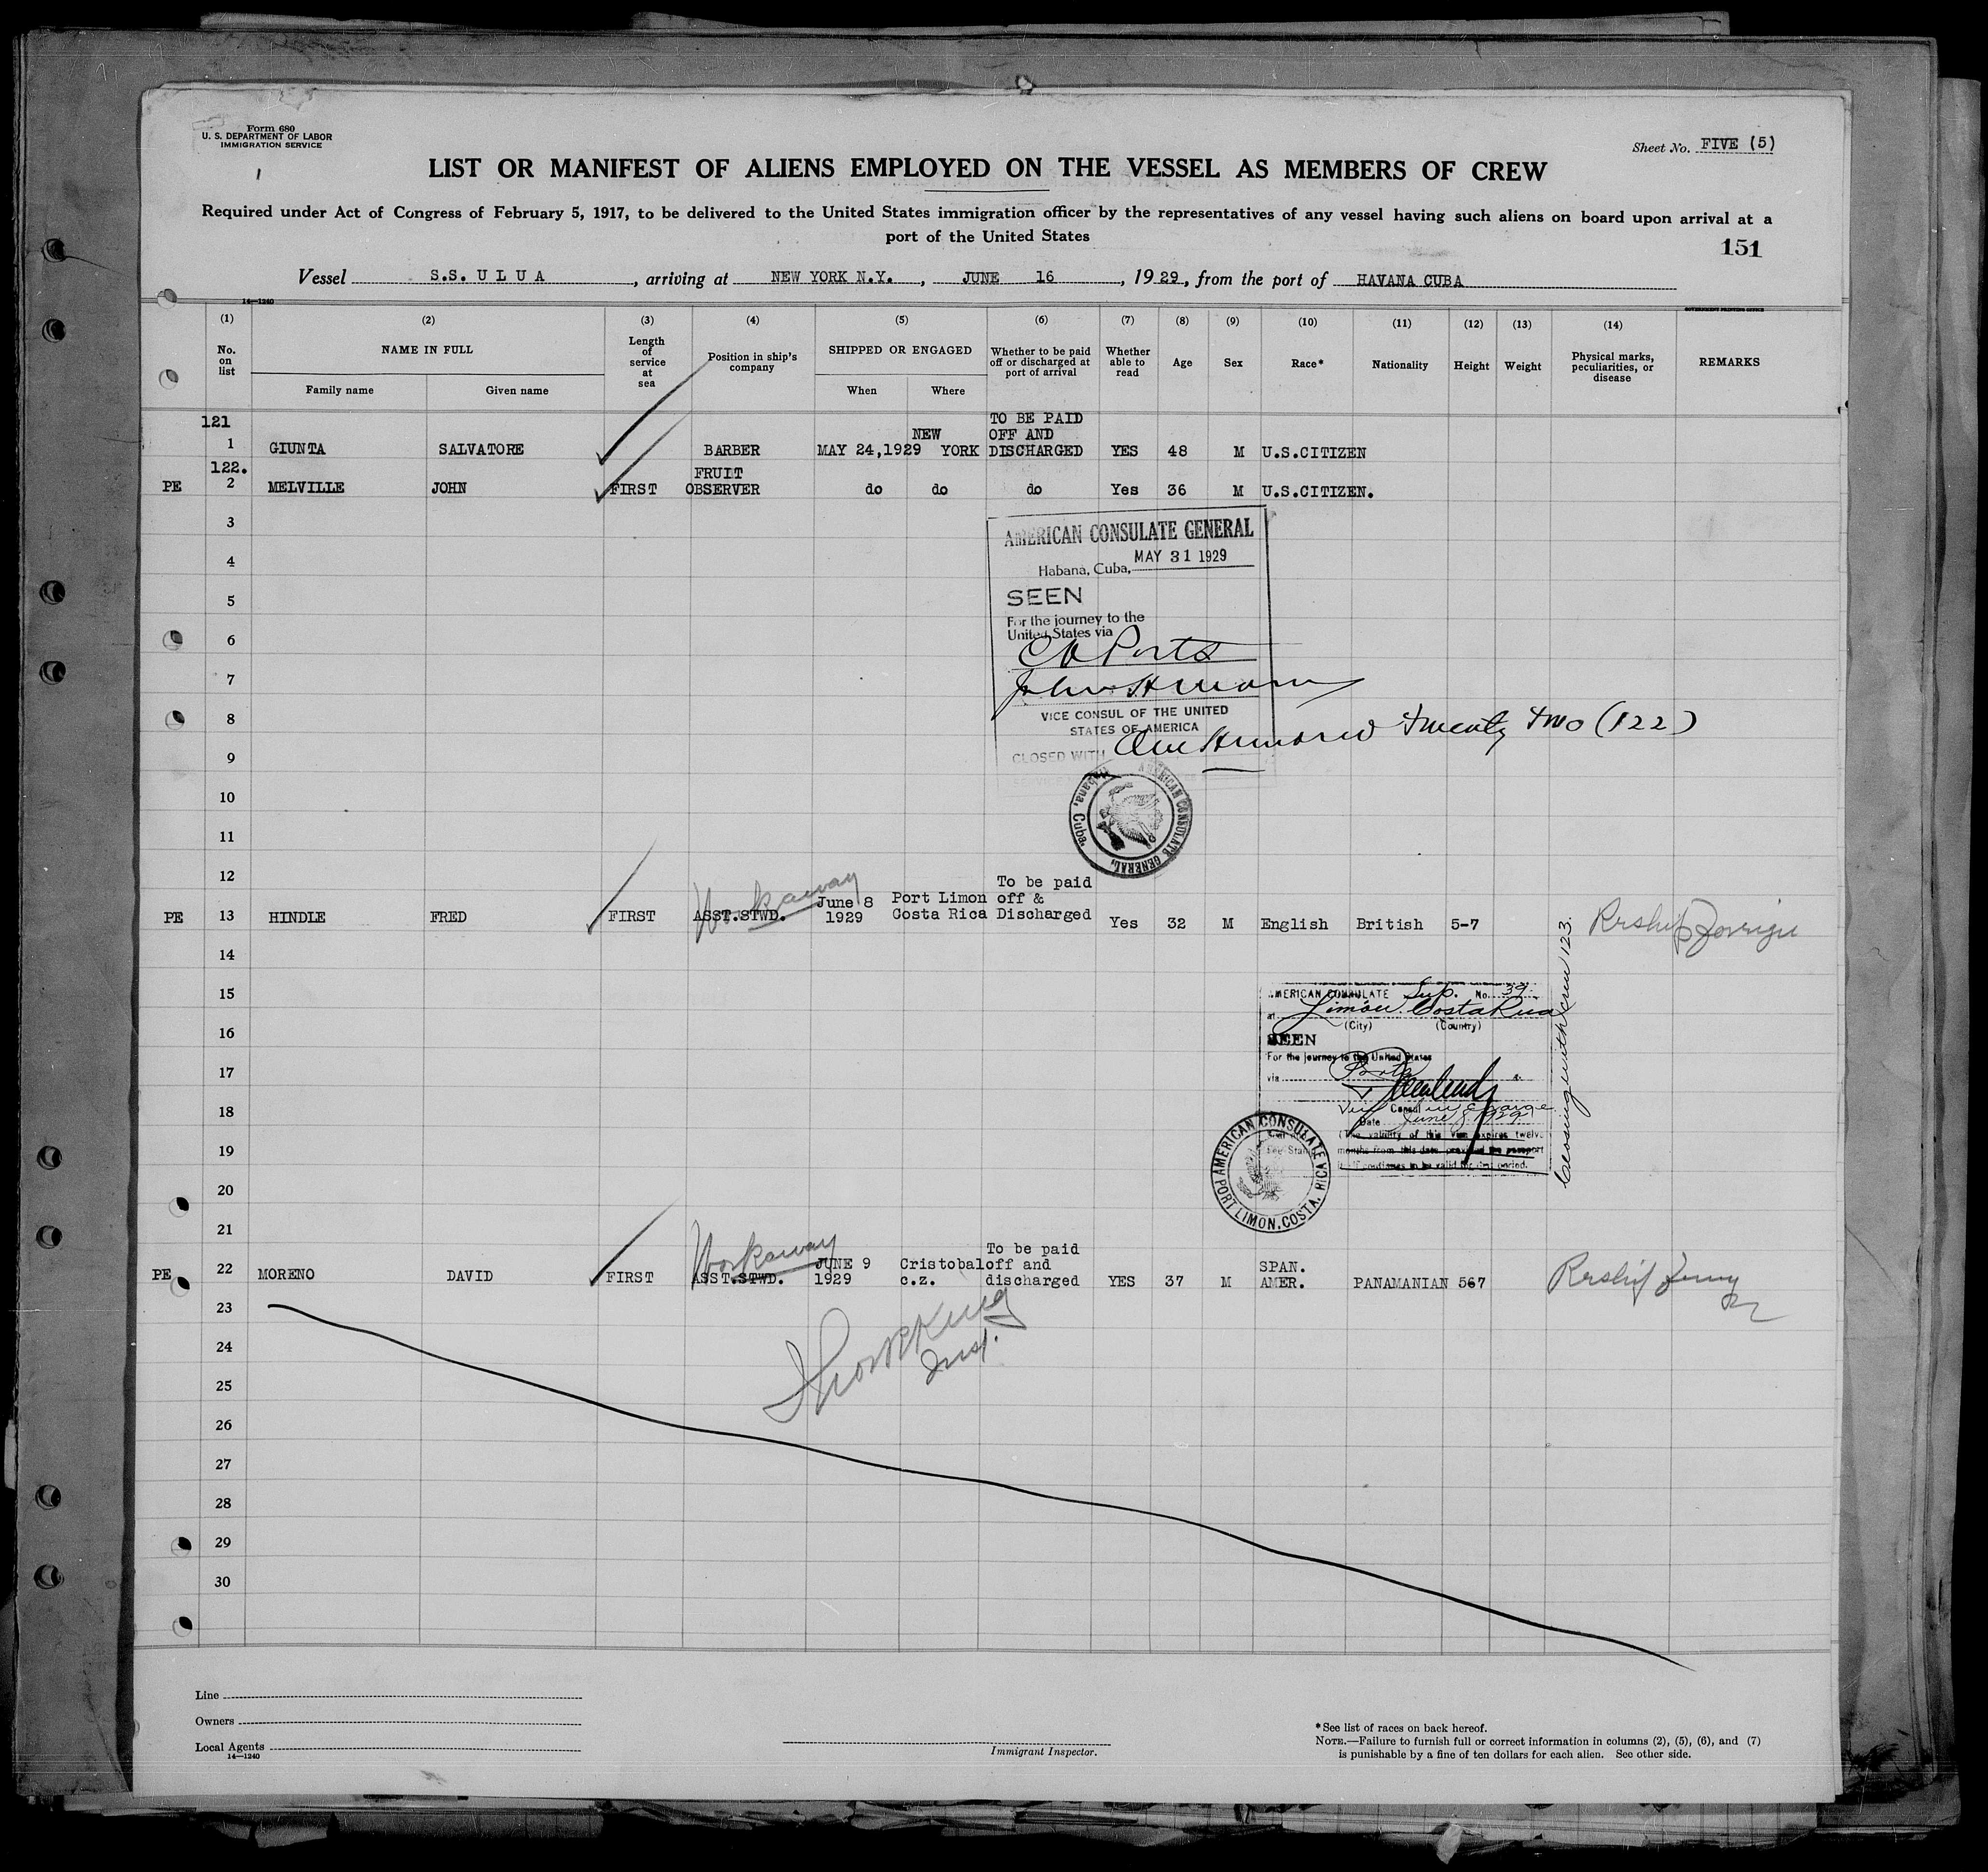 Form 680
U. S. DEPARTMENT OF LABOR
IMMIGRATION SERVICE
Sheet No. FIVE (5)
LIST OR MANIFEST OF ALIENS EMPLOYED ON THE VESSEL AS MEMBERS OF CREW
Required under Act of Congress of February 5, 1917, to be delivered to the United States immigration officer by the representatives of any vessel having such aliens on board upon arrival at a
port of the United States
151
Vessel S.S. U L U A, arriving at NEW YORK N.Y., JUNE 16, 1929, from the port of HAVANA CUBA
14—1240
GOVERNMENT PRINTING OFFICE
(1) (2) (3) (4) (5) (6) (7) (8) (9) (10) (11) (12) (13) (14)
No. on list
NAME IN FULL
Family name Given name
Length of service at sea
Position in ship's company
SHIPPED OR ENGAGED
When Where
Whether to be paid off or discharged at port of arrival
Whether able to read
Age
Sex
Race*
Nationality
Height
Weight
Physical marks, peculiarities, or disease
REMARKS
121
1 GIUNTA SALVATORE BARBER MAY 24,1929 NEW YORK TO BE PAID OFF AND DISCHARGED YES 48 M U.S.CITIZEN
122.
PE 2 MELVILLE JOHN FIRST FRUIT OBSERVER do do do Yes 36 M U.S.CITIZEN.
3
AMERICAN CONSULATE GENERAL
4
MAY 31 1929
Habana, Cuba,
5
SEEN
For the journey to the
United States via
6
7
8
VICE CONSUL OF THE UNITED
STATES OF AMERICA
CLOSED WITH One Hundred Twenty Two (122)
9
10
AMERICAN CONSULATE GENERAL, Habana, Cuba.
11
12
PE 13 HINDLE FRED FIRST Workaway ASST.STWD. June 8 1929 Port Limon Costa Rica To be paid off & Discharged Yes 32 M English British 5-7 Reship Foreign
14
Closing with crew 123.
15
AMERICAN CONSULATE Sup. No. 39
at Limón Costa Rica
(City) (Country)
16
SEEN
For the journey to the United States
17
via Ports
18
Vice Consul in Charge
Date June 8, 1929
(The validity of this visa expires twelve
19
months from this date provided the passport
itself continues to be valid for that period.
AMERICAN CONSULATE PORT LIMON, COSTA RICA
20
21
PE 22 MORENO DAVID FIRST Workaway ASST.STWD. JUNE 9 1929 Cristobal c.z. To be paid off and discharged YES 37 M SPAN. AMER. PANAMANIAN 567 Reship
23
24
Insp.
25
26
27
28
29
30
Line
Owners
Local Agents
14—1240
Immigrant Inspector.
*See list of races on back hereof.
NOTE.—Failure to furnish full or correct information in columns (2), (5), (6), and (7)
is punishable by a fine of ten dollars for each alien. See other side.